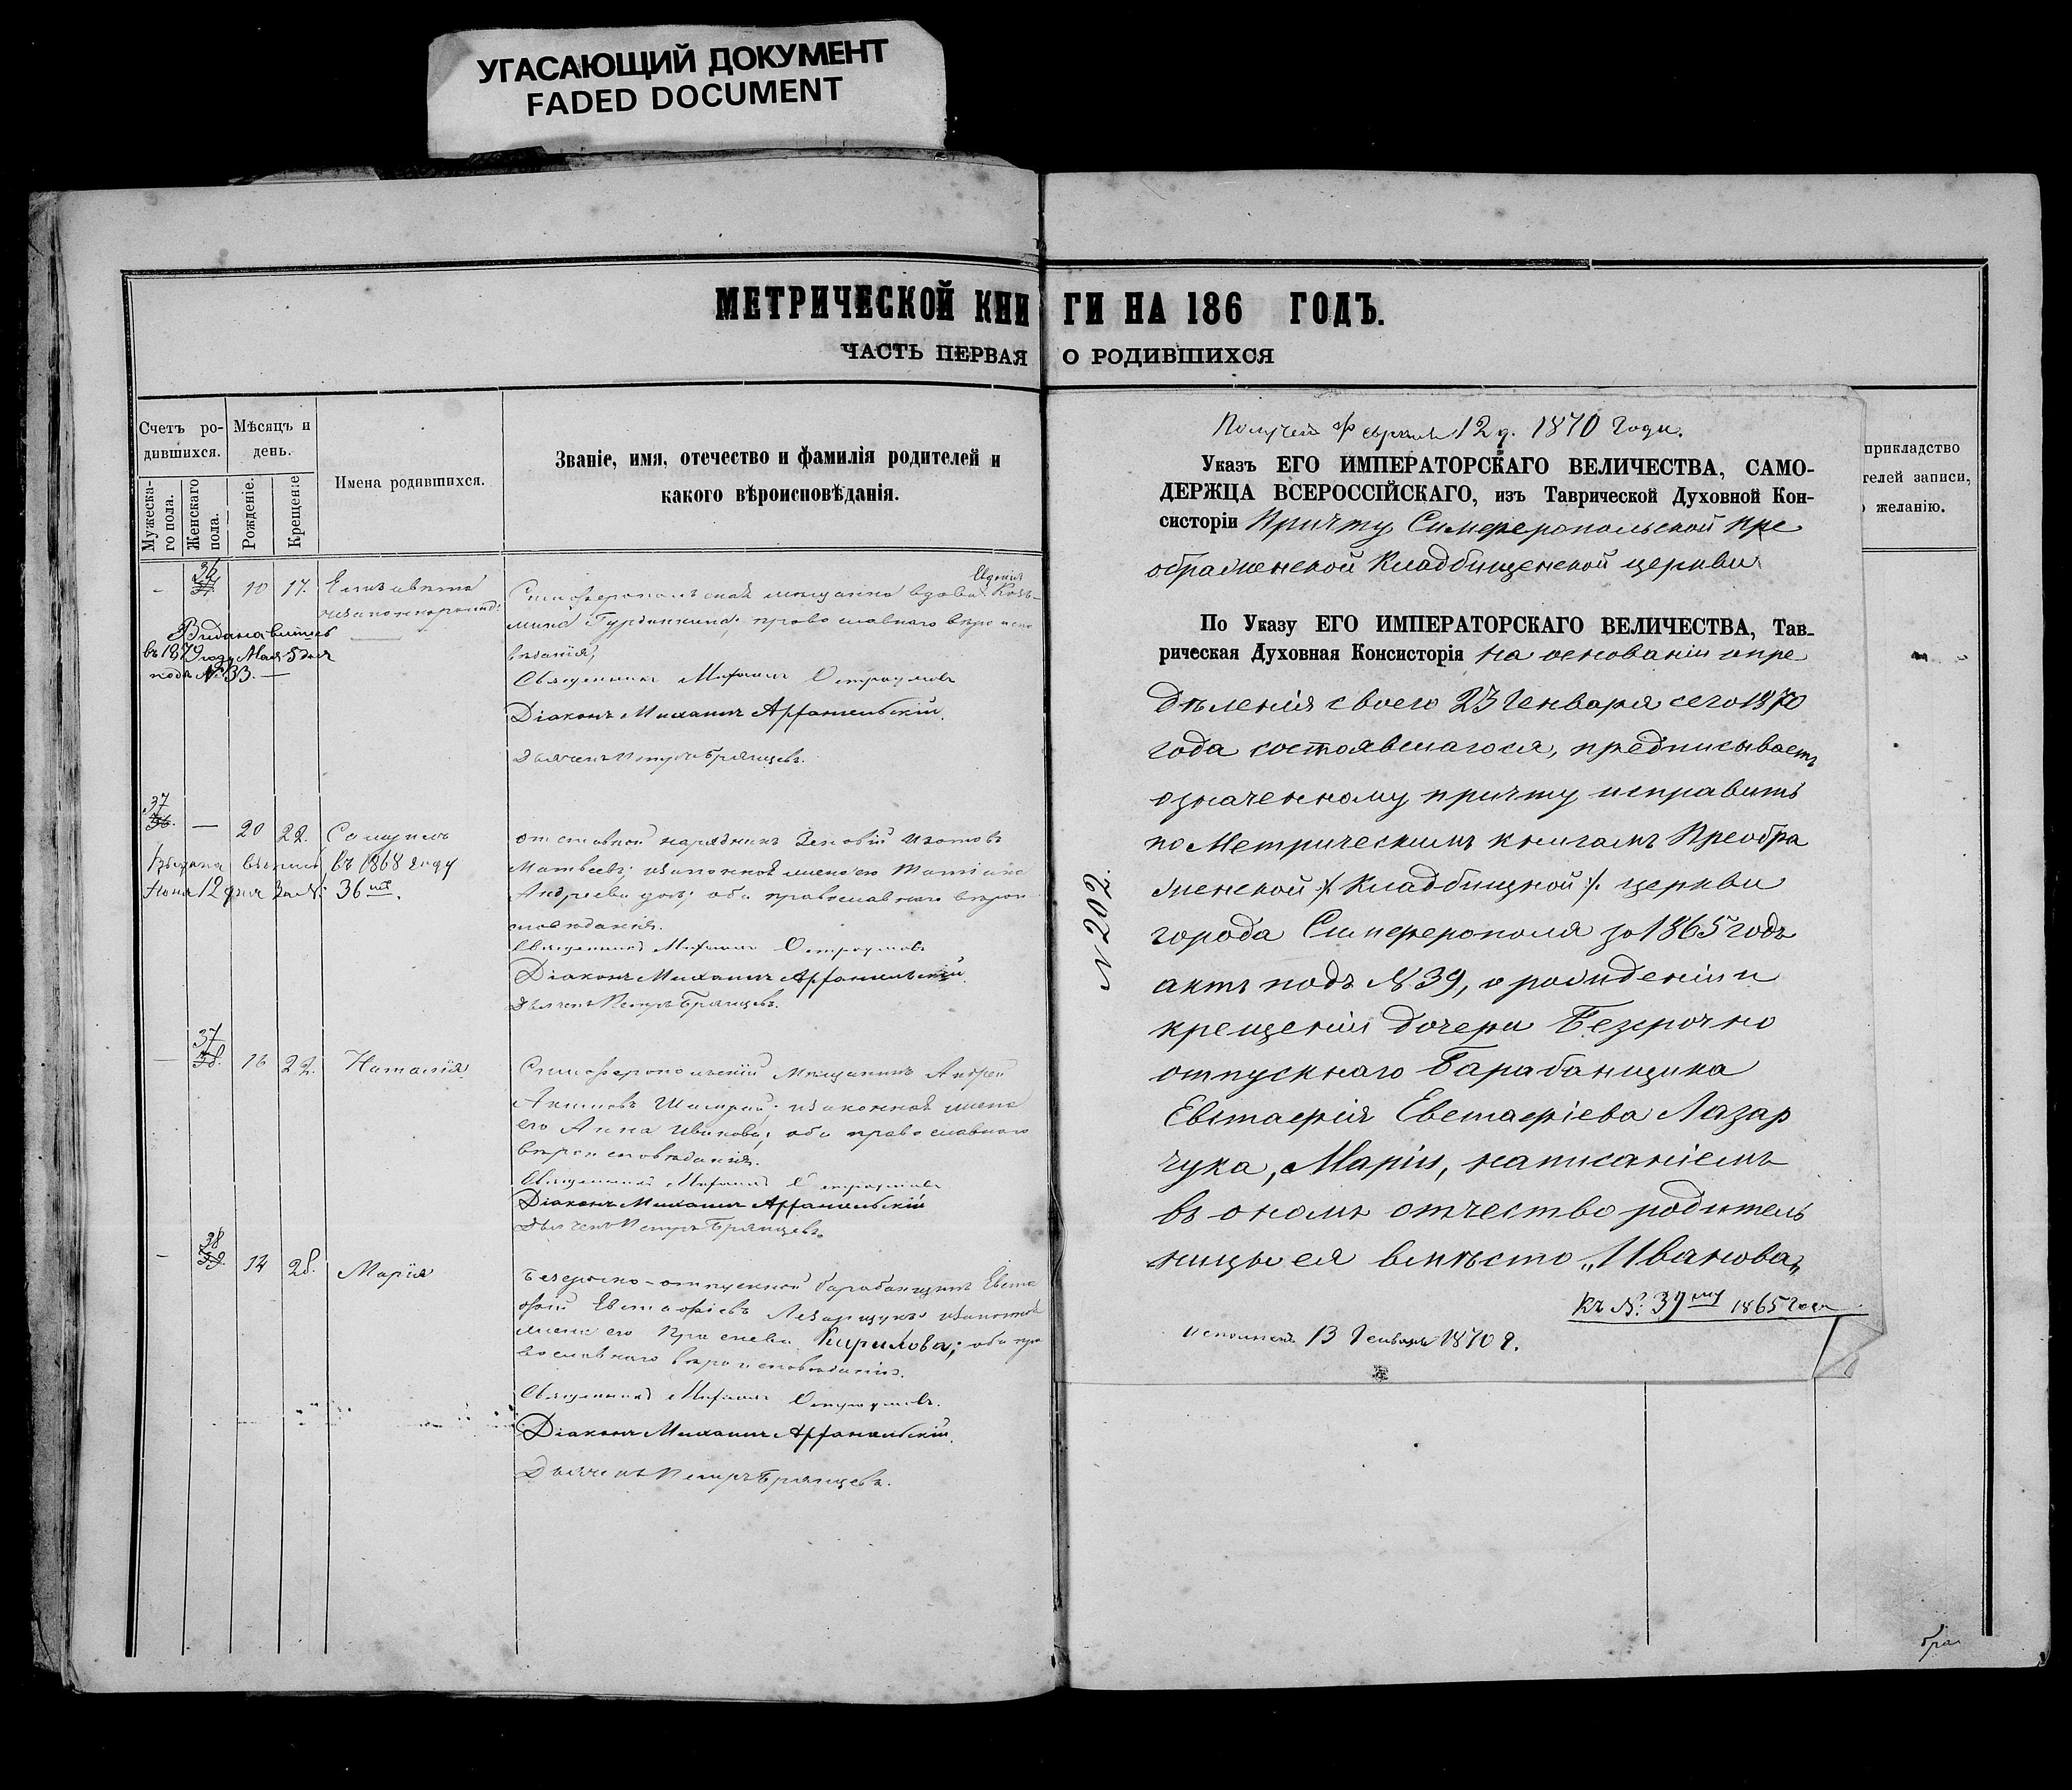 УГАСАЮЩИЙ ДОКУМЕНТ
FADED DOCUMENT
МЕТРИЧЕСКОЙ КНИ
ЧАСТЬ ПЕРВАЯ
Счетъ ро-
дившихся.
Мѣсяцъ и
день.
Мужеска-
го пола.
Женскаго
пола.
Рожденіе.
Крещеніе
Имена родившихся.
Званіе, имя, отечество и фамилія родителей и
какого вѣроисповѣданія.
36
10 17. Елизавета
незаконнорожд:
Выдана выпись
въ 1879 году Мая 5 дня
подъ № 33.
Евдокія
Симферопольская мѣщанка вдова Козь-
мина православнаго вѣроиспо
вѣданія;
Священникъ Михаилъ Остроумовъ
Діаконъ Михаилъ
Дьячекъ Петръ Брянцевъ.
37
36. — 20 22. Самуилъ
Выдана выпись въ 1868 году
Іюня 12 дня за №: 36
отставной Зеновій Изотовъ
Матвеевъ; законная жена его Татіана
Андреева дочь; оба православнаго вѣрои
сповѣданія.
Священникъ Михаилъ Остроумовъ
Діаконъ Михаилъ
Дьячекъ Петръ Брянцевъ.
37
— 38. 16 22. Наталія
Симферопольскій Мѣщанинъ Андрей
Акимовъ законная жена
его Анна Иванова; оба православнаго
вѣроисповѣданія.
Священникъ Михаилъ Остроумовъ
Діаконъ Михаилъ
Дьячекъ Петръ Брянцевъ.
38
— 39. 14 28. Марія
Безсрочно-отпускной барабанщикъ Евста
фій Евстафіевъ Лазарчукъ законная
жена его Кирилова; оба пра
вославнаго вѣроисповѣданія.
Священникъ Михаилъ Остроумовъ.
Діаконъ Михаилъ
Дьячекъ Петръ Брянцевъ.
ГИ НА 186 ГОДЪ.
О РОДИВШИХСЯ
прикладство
телей записи,
о желанію.
Получен Февраля 12 д. 1870 Года.
Указъ ЕГО ИМПЕРАТОРСКАГО ВЕЛИЧЕСТВА, САМО-
ДЕРЖЦА ВСЕРОССІЙСКАГО, изъ Таврической Духовной Кон-
систоріи Причту Симферопольской Пре
ображенской Кладбищенской церкви
По Указу ЕГО ИМПЕРАТОРСКАГО ВЕЛИЧЕСТВА, Тав-
рическая Духовная Консисторія на основаніи опре
дѣленія своего 23 Генваря сего 1870
года состоявшагося, предписываетъ
означенному причту исправить
по Метрическимъ книгамъ Преобра
женской /. Кладбищной /. церкви
города Симферополя за 1865 годъ
актъ подъ №. 39, о рожденіи и
крещеніи дочери Безсрочно
отпускнаго Барабанщика
Евстафія Евстафіева Лазар
чука, Маріи, написаніемъ
въ ономъ отчество родитель
ницы ея вмѣсто „Иванова„
къ №: 39му 1865 года
Исполнен 13 Генваря 1870 г.
№ 202.